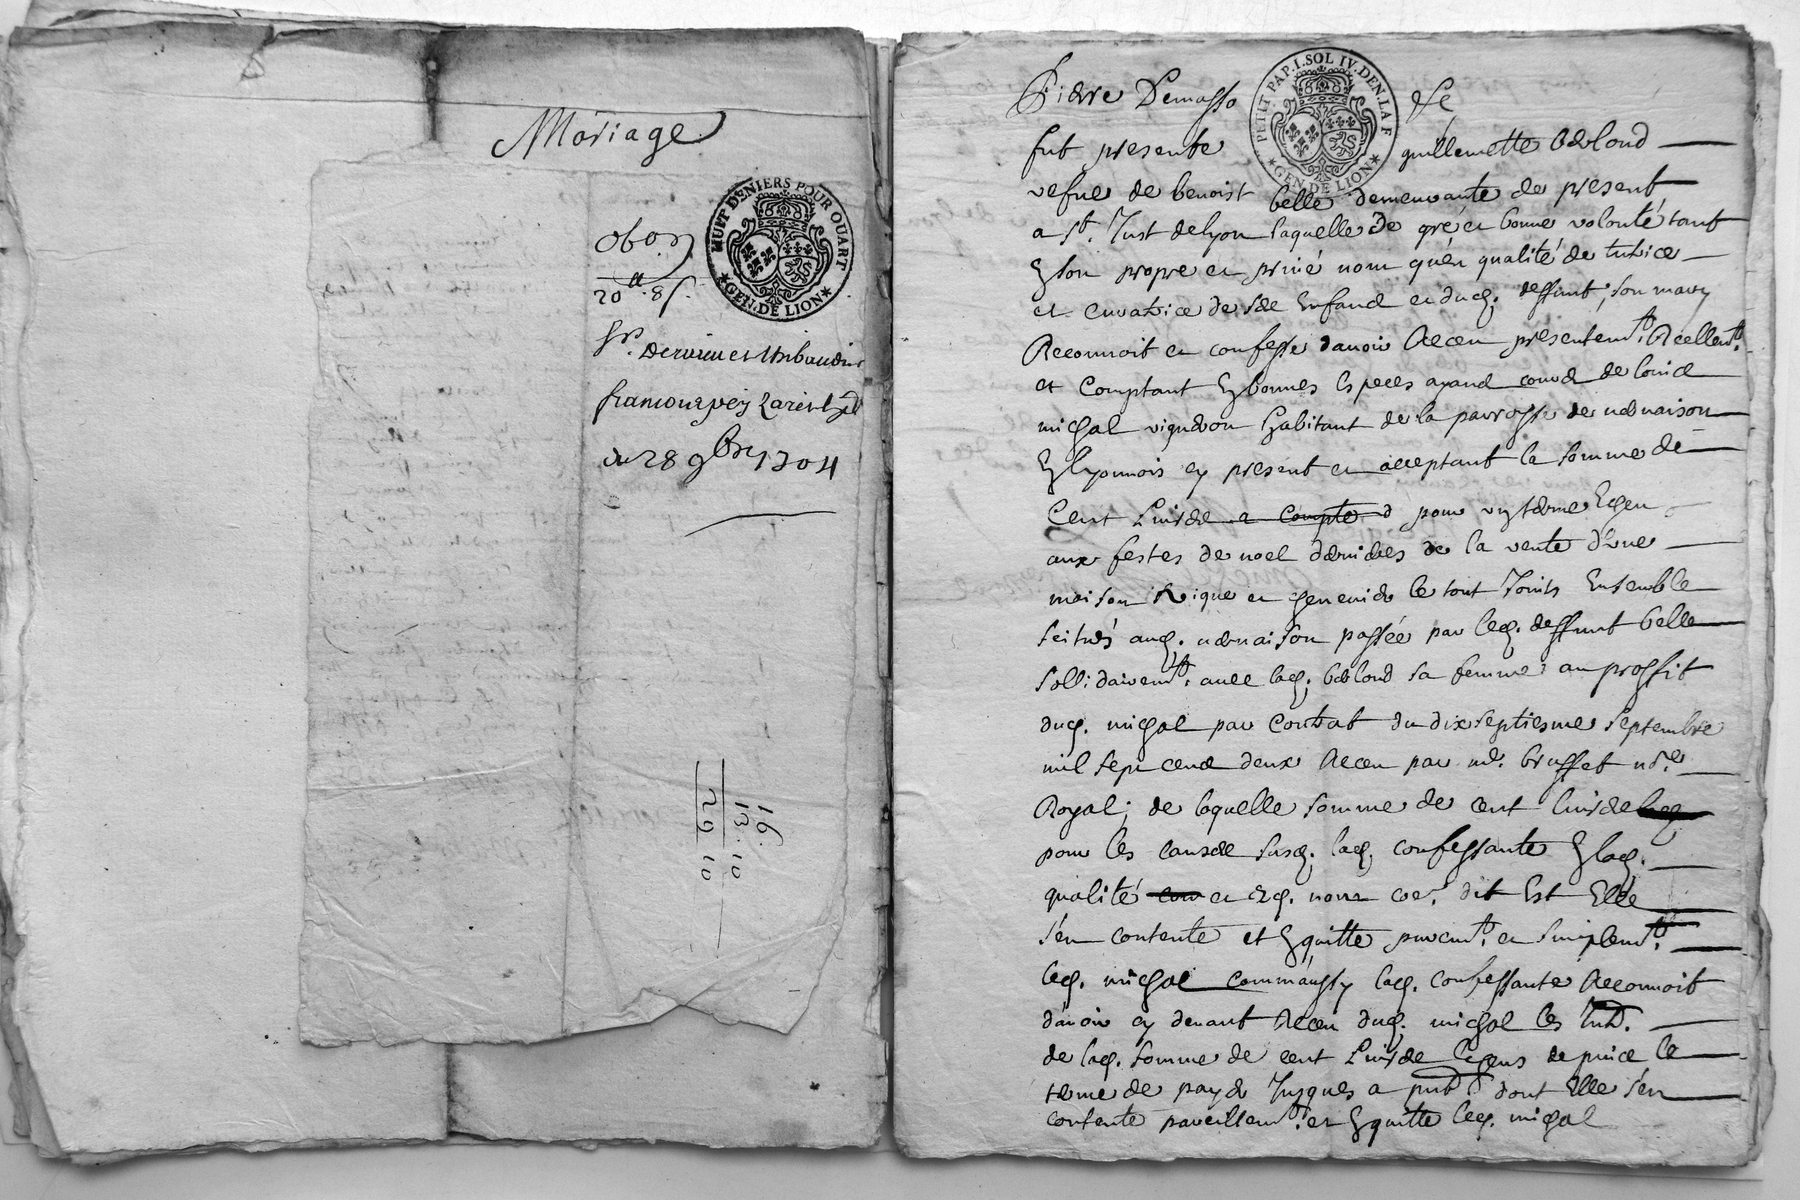 Mariage
HUIT DENIERS POUR QUART
★GEN. DE LION★
20 ₶ 8 s.
Sr. et thibaudier
du 28 9bre 1704
16
13 10
29 10
Pierre Demasso
PETIT PAP. I. SOL IV. DEN. LA F
★GEN. DE LION★
fut presente guillemette
vefue de benoist belle demeurante de present
a St. Just de lyon laquelle de gré et bonne volonté tant
En son propre et privé nom qu'en qualité de tutrice
et curatrice de sde Enfand et dud. deffunt son mary
Reconnoit et confesse d'auoir Receu presentemt. Reellemt.
et Comptant En bonnes Especes ayand cours de
michal vigneron habitant de la parroisse de
En lyonnois cy present et acceptant la somme de
Cent a compte pour vn terme Echeu
aux festes de noel dernieres de la vente d'vne
maison vigne et le tout Joints Ensemble
scitués aud. passée par led. deffunt belle
sollidairemt. auec lad. sa femme au proffit
dud. michal par Contrat du dix septiesme septembre
mil sept cend deux Receu par me. brosset nore.
Royal; de laquelle somme de cent
pour les causes susd. lad. confessante En lad.
qualité et nom coe. dit Est Elle
s'en contente et En quitte puremt. et simplemt.
led. michal lad. confessante Reconnoit
d'auoir cy deuant Receu dud. michal les
de lad. somme de cent de puis le
terme de payer Jusques a dont Elle s'en
contente pareillemt. et En quitte led. michal